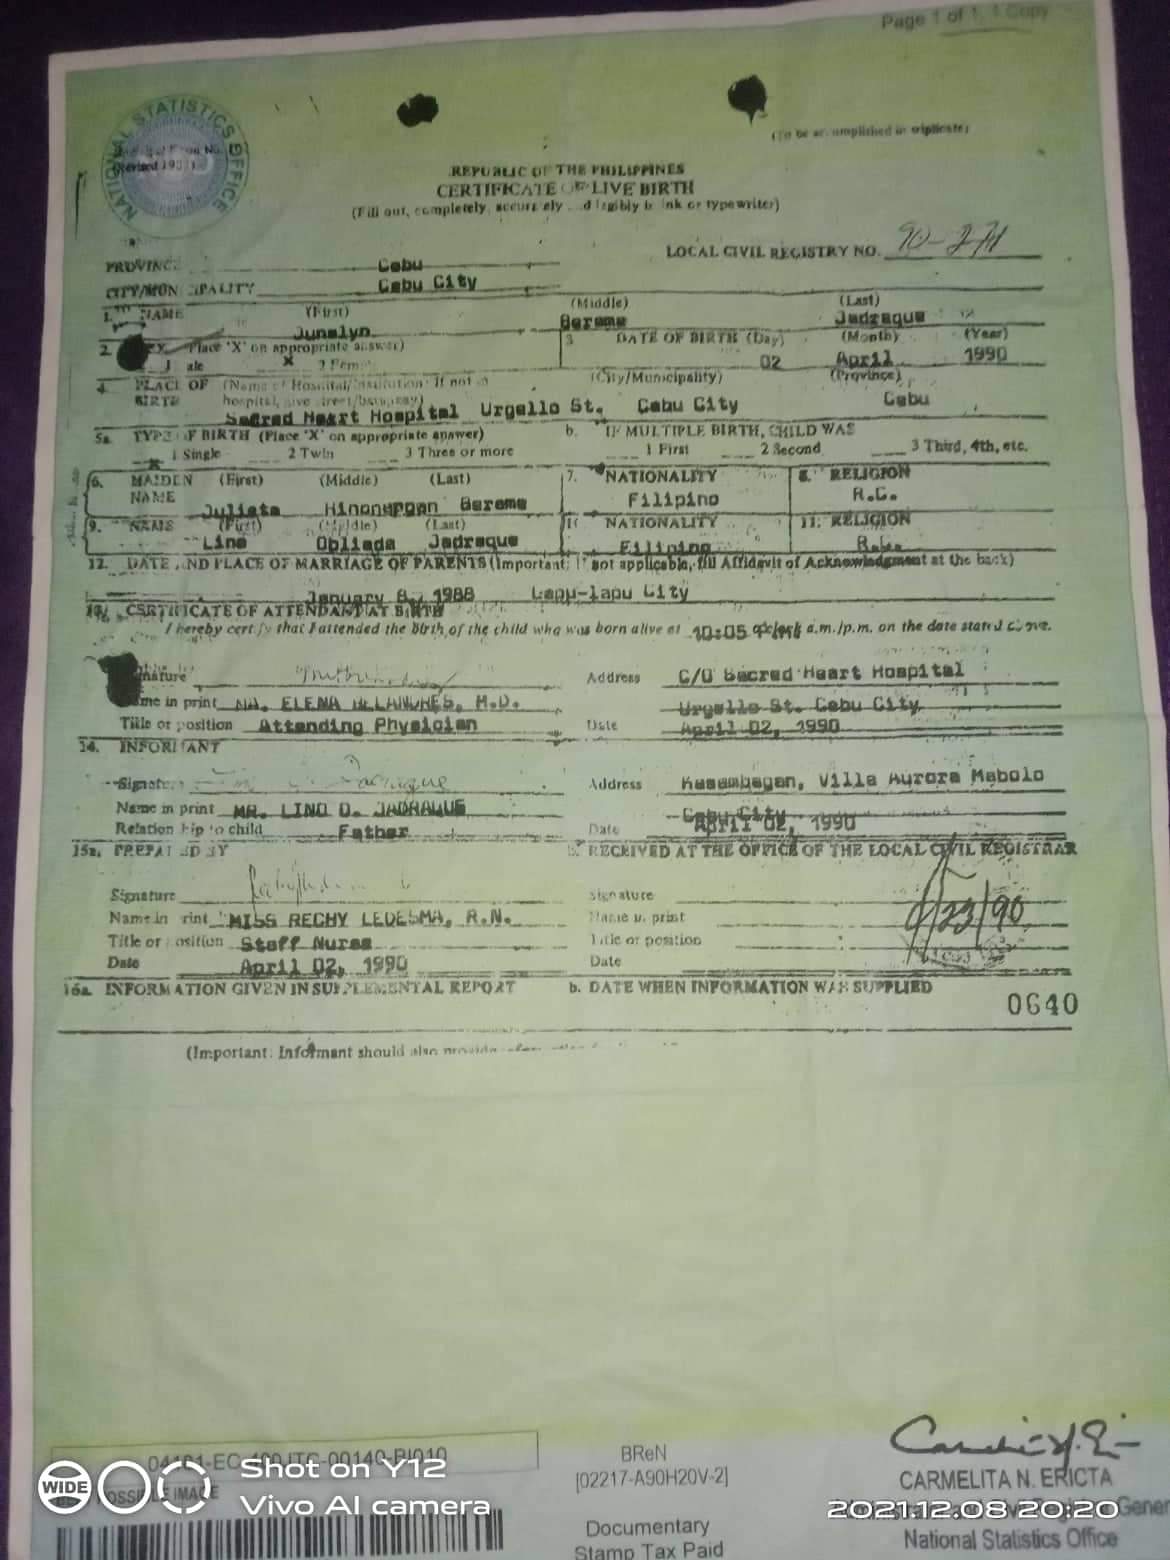 Page 1 of 1, 1 Copy
NATIONAL STATISTICS OFFICE
(To be accomplished in triplicate)
REPUBLIC OF THE PHILIPPINES
CERTIFICATE OF LIVE BIRTH
(Fill out, completely, accurately and legibly in ink or typewriter)
LOCAL CIVIL REGISTRY NO.
PROVINCE Cebu
CITY/MUNICIPALITY Cebu City
1. NAME (First) (Middle) (Last)
Junalyn Berame Jadraque
2. SEX (Place 'X' on appropriate answer) 3 DATE OF BIRTH (Day) (Month) (Year)
1 Male X 2 Female 02 April 1990
4. PLACE OF BIRTH (Name of Hospital/Institution: If not in hospital, give street/barangay) (City/Municipality) (Province)
Sacred Heart Hospital Urgello St. Cebu City Cebu
5a. TYPE OF BIRTH (Place 'X' on appropriate answer) b. IF MULTIPLE BIRTH, CHILD WAS
X 1 Single 2 Twin 3 Three or more 1 First 2 Second 3 Third, 4th, etc.
6. MAIDEN NAME (First) (Middle) (Last) 7. NATIONALITY 8. RELIGION
Julieta Berame Filipino R.C.
9. NAME (First) (Middle) (Last) 10 NATIONALITY 11. RELIGION
Lino Obliada Jadraque Filipino
12. DATE AND PLACE OF MARRIAGE OF PARENTS (Important: If not applicable, fill Affidavit of Acknowledgment at the back)
January 8, 1988 Lapu-lapu City
CERTIFICATE OF ATTENDANT AT BIRTH
I hereby certify that I attended the birth of the child who was born alive at 10:05 o'clock a.m./p.m. on the date stated above.
Signature Address C/O Sacred Heart Hospital
Name in print MA. ELENA M.D. Urgello St. Cebu City
Title or position Attending Physician Date April 02, 1990
14. INFORMANT
Signature Jadraque Address Kasambagan, Villa Aurora Mabolo
Name in print MR. LINO O. JADRAQUE Cebu City
Relationship to child Father Date April 02, 1990
15a. PREPARED BY b. RECEIVED AT THE OFFICE OF THE LOCAL CIVIL REGISTRAR
Signature Signature
Name in print MISS RECHY LEDESMA, R.N. Name in print
Title or position Staff Nurse Title or position
Date April 02, 1990 Date
4/23/90
16a. INFORMATION GIVEN IN SUPPLEMENTAL REPORT b. DATE WHEN INFORMATION WAS SUPPLIED
0640
(Important: Informant should also provide
BReN
[02217-A90H20V-2]
Documentary
Stamp Tax Paid
CARMELITA N. ERICTA
National Statistics Office
WIDE
Shot on Y12
Vivo AI camera
2021.12.08 20:20